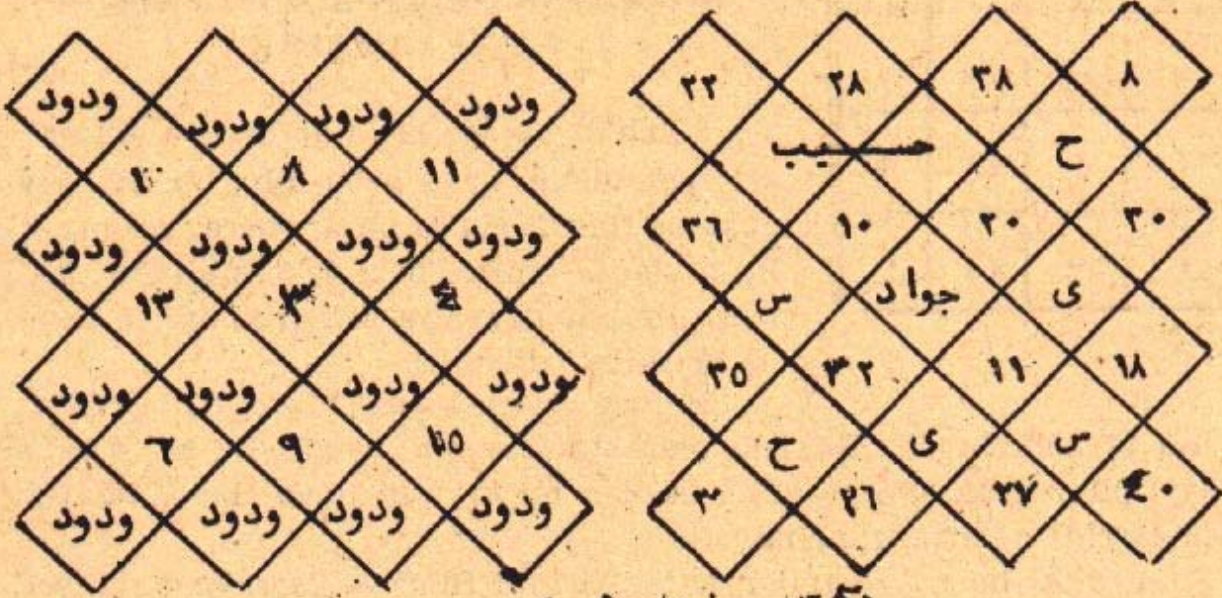 ودود ودود ودود ودود
٨ ١١
ودود ودود ودود ودود
١٣ ٣ ٤
ودود ودود ودود ودود
٦ ٩ ١٥
ودود ودود ودود ودود
٢٨ ٨
حسيب ح
١٠ ٢٠
س جواد ى
٣٢ ١١ ١٨
ح ى س
٣ ٤٠